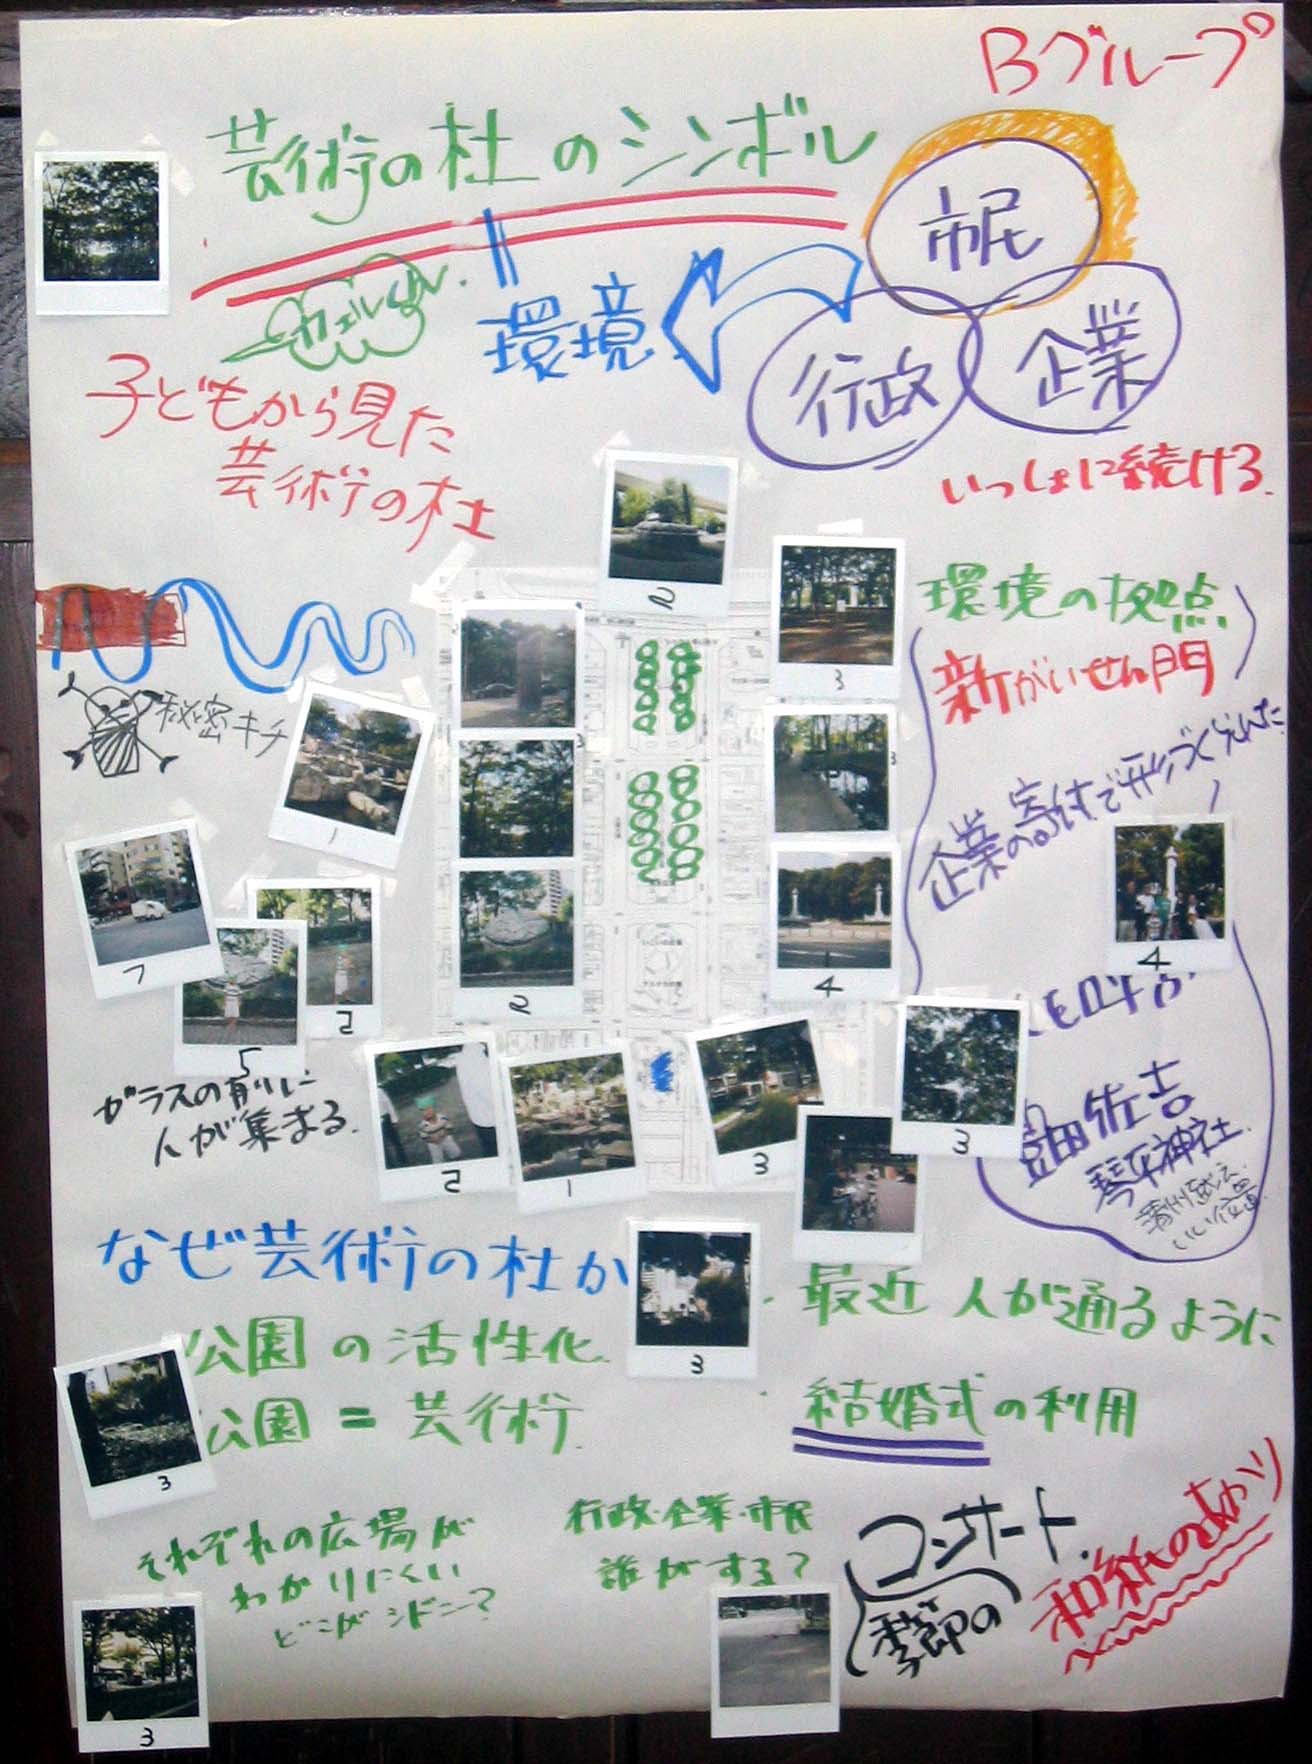 Bグループ
芸術の杜のシンボル
市民
行政
企業
環境
カエルくん.
子どもから見た
芸術の杜
いっしょに続ける.
環境の拠点
新がいせん門
企業の寄付で形づくられた
秘密キチ
2
3
3
1
3
7
2
5
2
4
4
ガラスの前に
人が集まる.
2
1
3
3
豊田佐吉
琴平神社.
いい位置.
なぜ芸術の杜か
公園の活性化.
公園=芸術.
3
3
・最近 人が通るように
・結婚式の利用
それぞれの広場が
わかりにくい
どこがシドニー?
行政・企業・市民
誰がする?
コンサート.
季節の
和紙のあかり
3